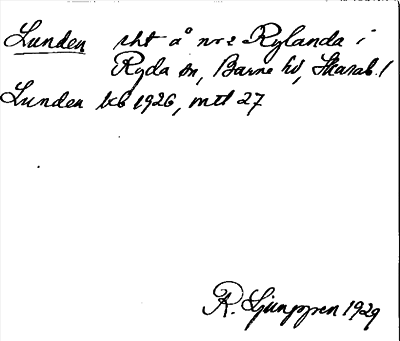 Lunden sht å nr 2 Rylanda i
Ryda sn, Barne hd, Skarab. l
Lunden kb 1926, mtl 27
R. Ljunggren 1929